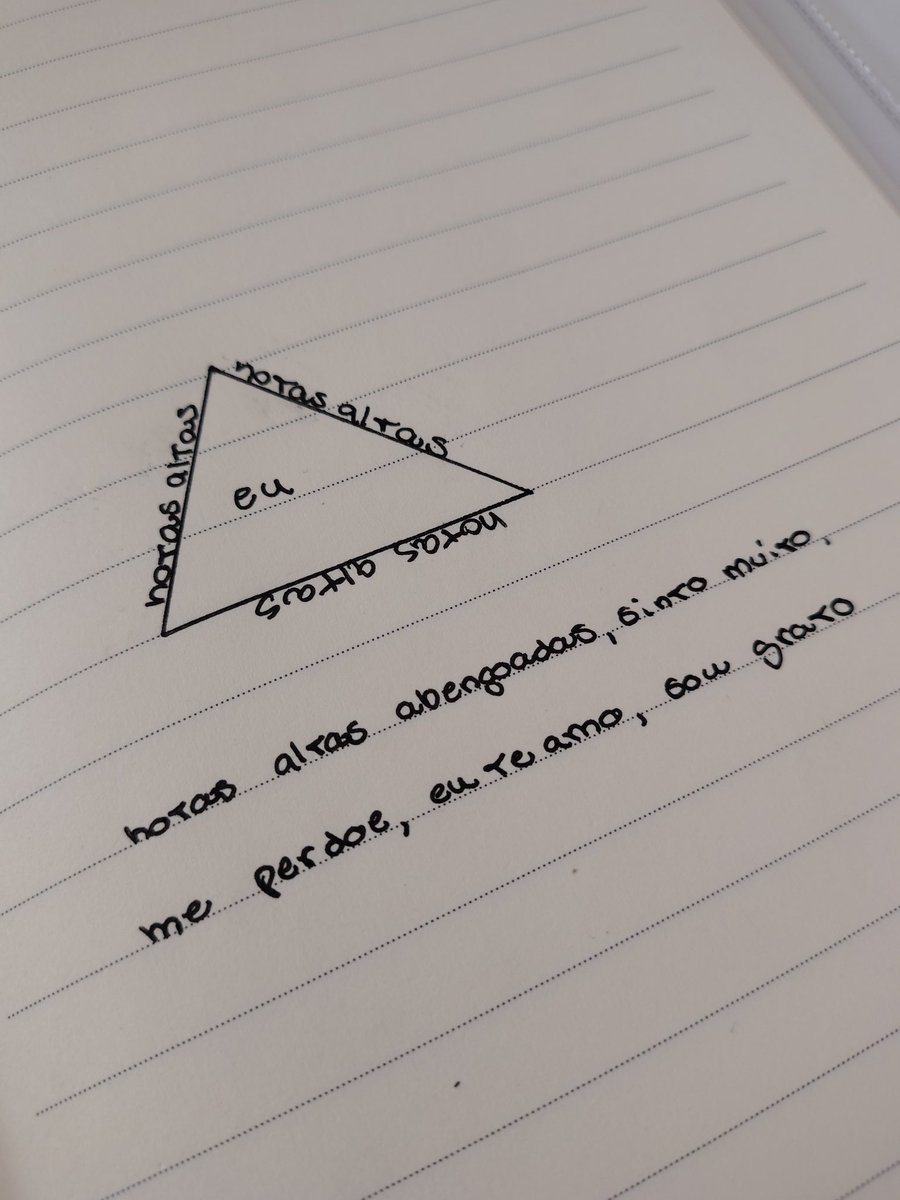 notas altas
notas altas
eu
notas altas
notas altas abençoadas, sinto muito,
me perdoe, eu te amo, sou grato